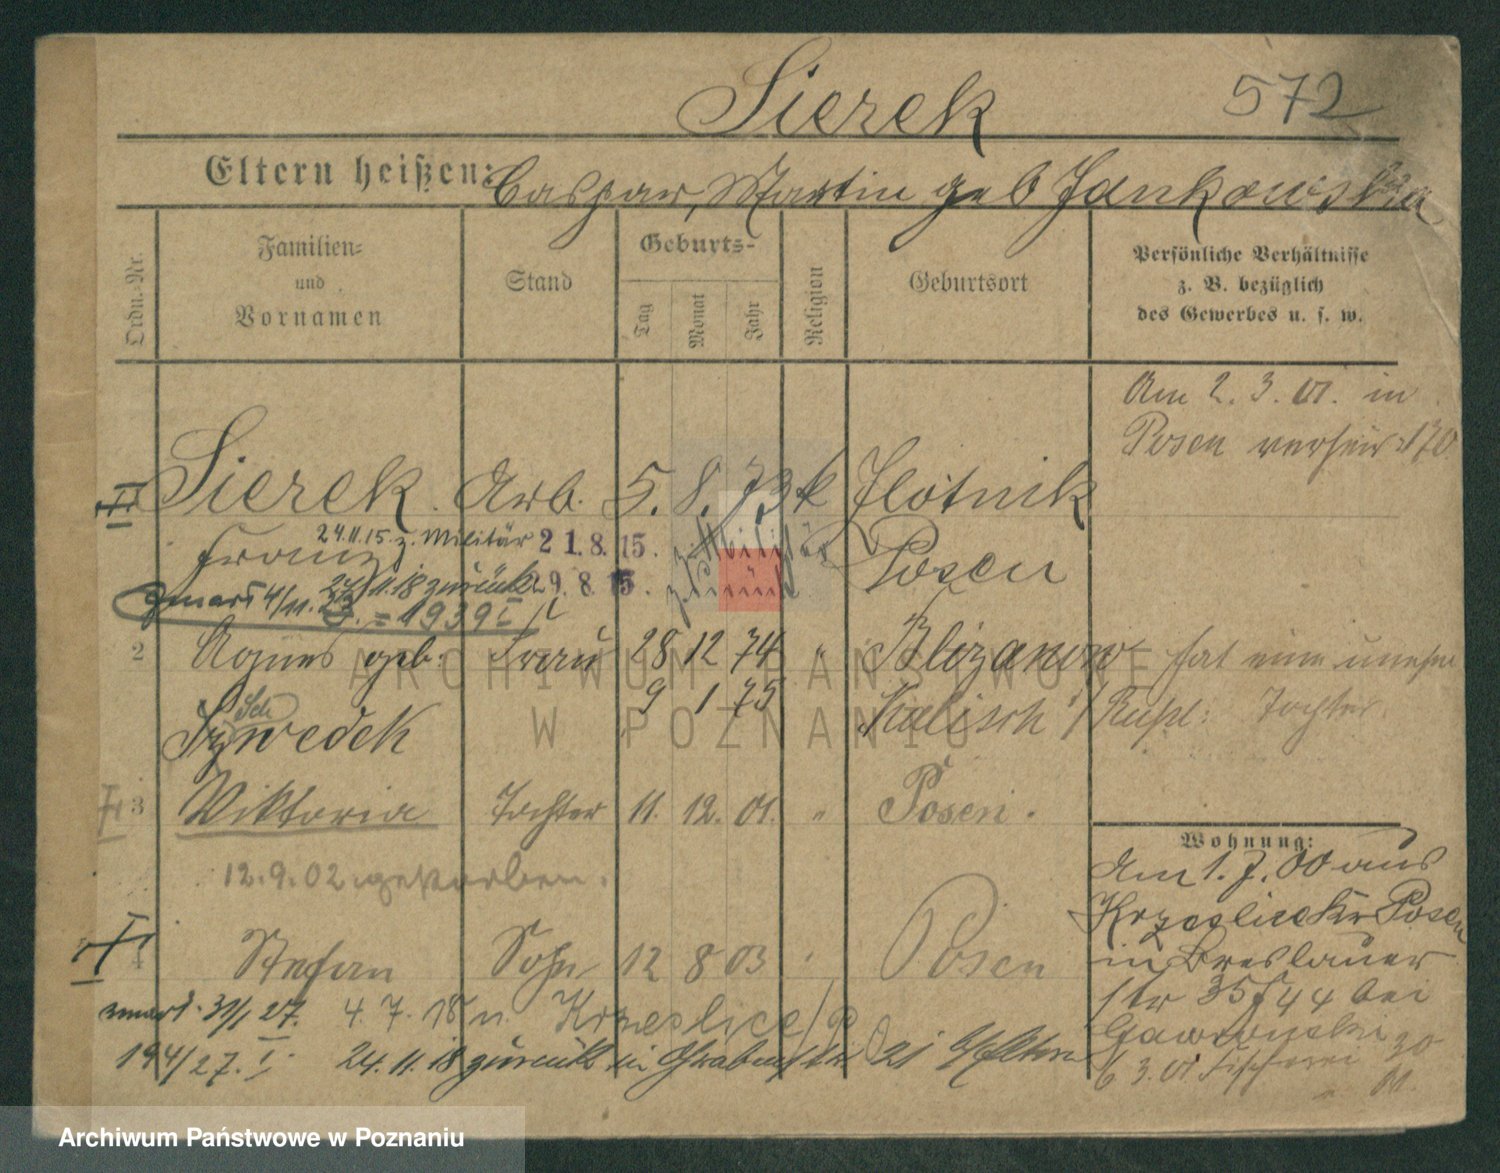 Sierek 572
Eltern heißen: Caspar, Martin geb Jankowska
Ordn. Nr.
Familien-
und
Vornamen
Stand
Geburts-
Tag
Monat
Jahr
Religion
Geburtsort
Persönliche Verhältnisse
z. B. bezüglich
des Gewerbes u. s. w.
Am 2. 3. 01. in
Posen
Sierek Arb. 5. 8. 73 k Zlotnik
24.11.15. z. Militär 21.8.15. z. Militär
Franz Posen
24/11.18 zurück 29.8.15. zurück
zmarł 4/11. 23. = 1939 I
2 Agnes geb. Frau 28 12 74 " Blizanow hat eine unehel
9 1 75
Sch
Szwedek Kalisch / Rußl: Tochter
3 Viktoria Tochter 11. 12. 01. " Posen.
12.9.02 gestorben.
Wohnung:
Am 1. 7. 00 aus
Krzeslice Kr Posen
4 Stefan Sohn 12 8 03 Posen
in Breslauer
str 35 bei
zmarł. 31/1 27. 4. 7. 18 n. Krzeslice / P
Gawronski
194/27. I. 24. 11. 18 zurück in Grabenstr 21 Eltern
6 3. 01 Fischerei
ARCHIWUM PAŃSTWOWE
W POZNANIU
Archiwum Państwowe w Poznaniu